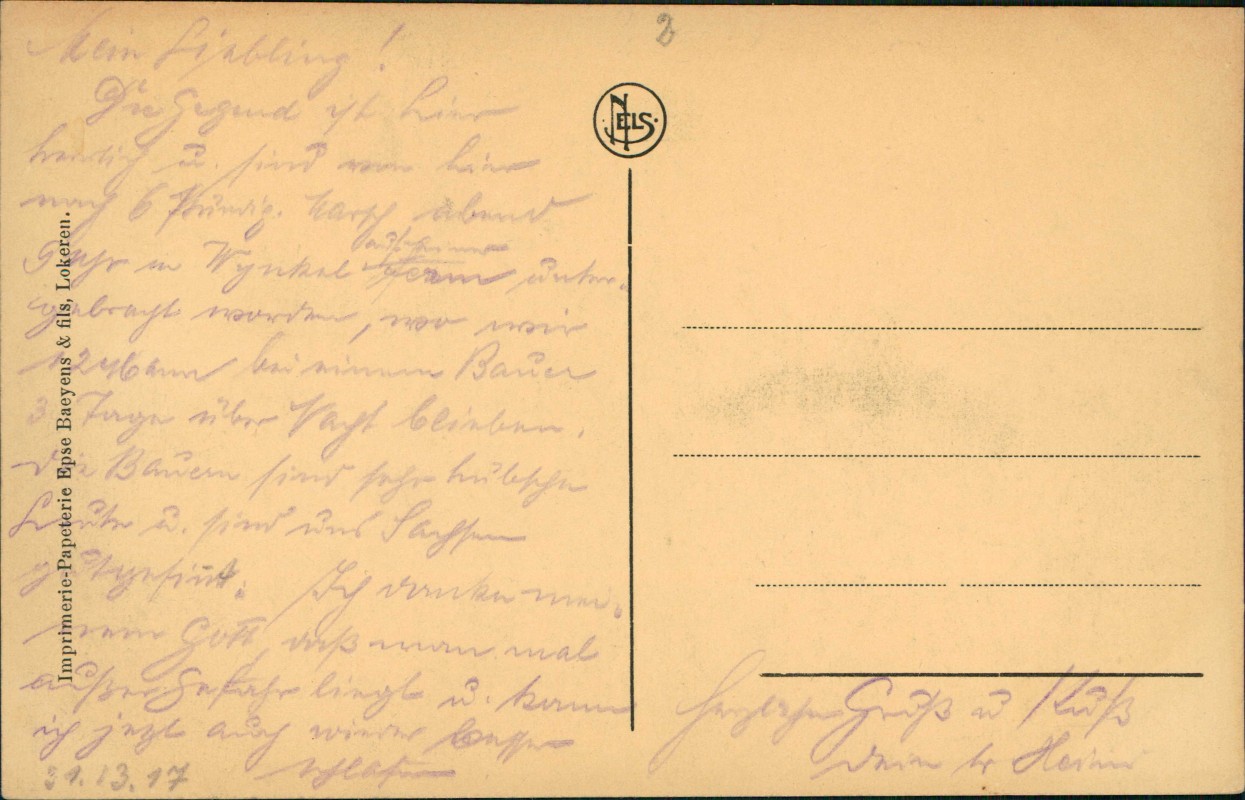 Mein Liebling!
Die Gegend ist hier
herrlich u. sind von hier
nach 6 stündig. Marsch abend
9 Uhr in Wynkel auf einer
Ferm unter-
gebracht worden, wo wir
12 Mann bei einem Bauer
3 Tage über Nacht blieben.
Die Bauern sind sehr hübsche
Leute u. sind uns Sachsen
gutgesinnt. Ich danke mei-
nem Gott, daß man mal
außer Gefahr liegt u. kann
ich jetzt auch wieder besser
schlafen
Imprimerie-Papeterie Epse Baeyens & fils, Lokeren.
2
NELS
Herzlichen Gruß u Kuß
Dein tr Heini